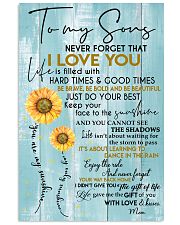 To my Sons
NEVER FORGET THAT
I LOVE YOU
Life is filled with
HARD TIMES & GOOD TIMES
BE BRAVE, BE BOLD AND BE BEAUTIFUL
JUST DO YOUR BEST
Keep your
face to the sunshine
AND YOU CANNOT SEE
THE SHADOWS
Life isn't about waiting for
the storm to pass
IT'S ABOUT LEARNING TO
DANCE IN THE RAIN
Enjoy the ride
And never forget
YOUR WAY BACK HOME
I DIDN'T GIVE YOU The gift of life
Life gave me the GIFT OF you
WITH LOVE &
Mom
you are my sunshine